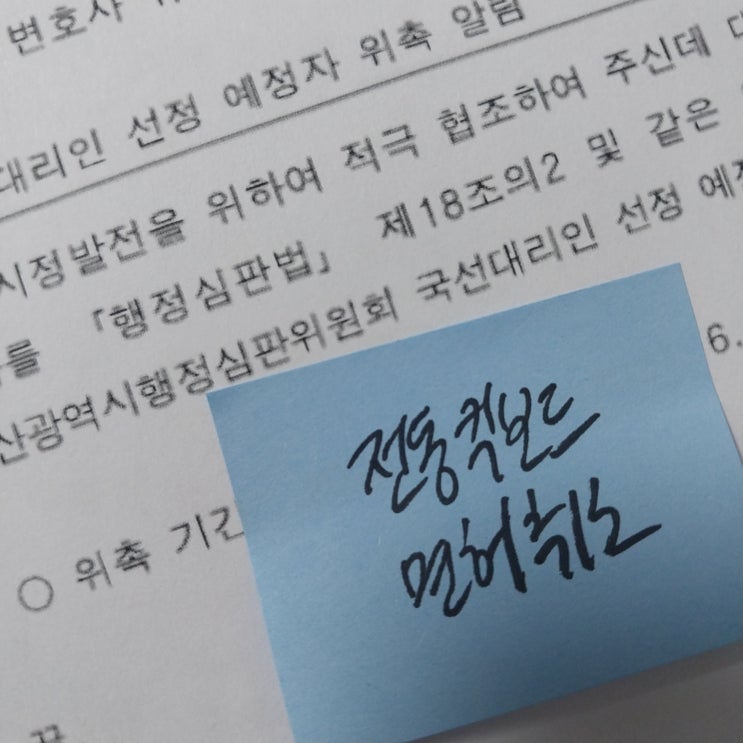 변호사
대리인 선정 예정자 위촉 알림
시정발전을 위하여 적극 협조하여 주신데
를 「행정심판법」 제18조의2 및 같은
산광역시행정심판위원회 국선대리인 선정 예정
6.
○ 위촉 기간
끝
전동킥보드
면허취소